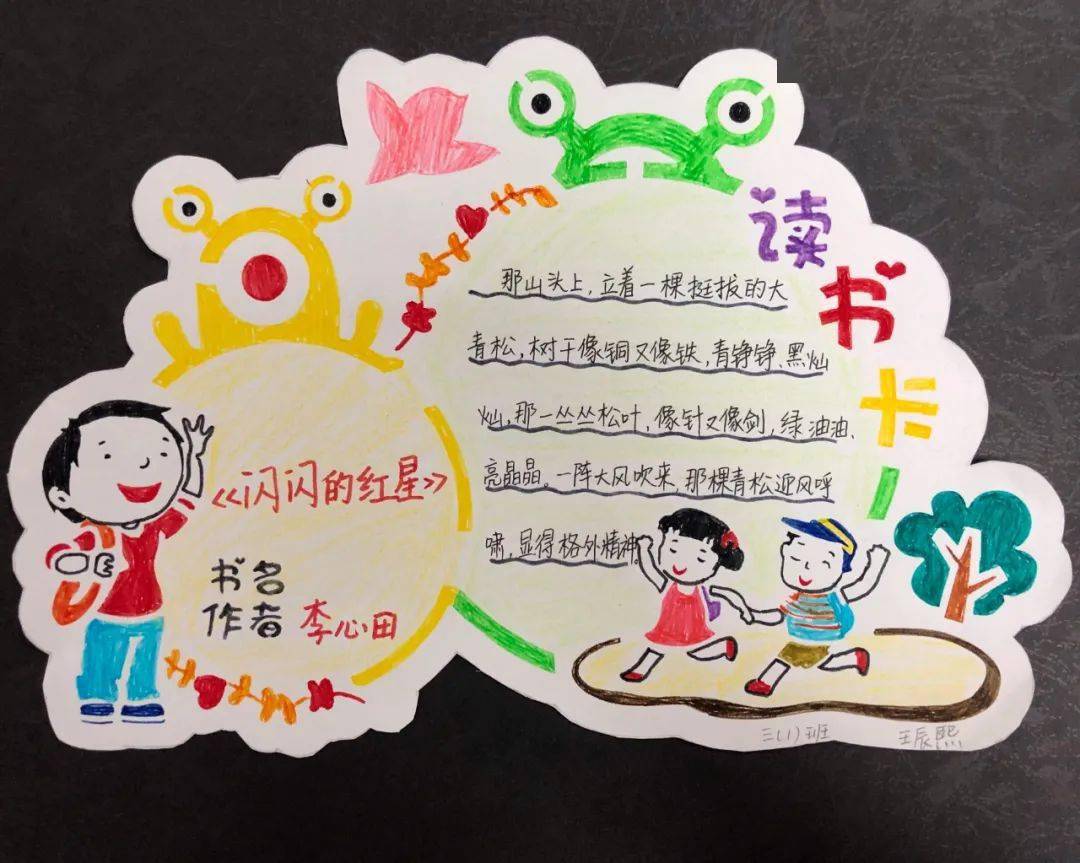 读书卡
《闪闪的红星》
书名
作者 李心田
那山头上,立着一棵挺拔的大
青松,树干像铜又像铁,青铮铮、黑灿
灿,那一丛丛松叶,像针又像剑,绿油油、
亮晶晶。一阵大风吹来,那棵青松迎风呼
啸,显得格外精神。
三(1)班 王辰熙